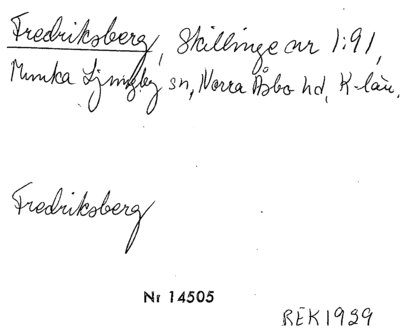 Fredriksberg, Skillinge nr 1:91,
Munka Ljungby sn, Norra Åsbo hd, K-län.
Fredriksberg
Nr 14505
REK 1929